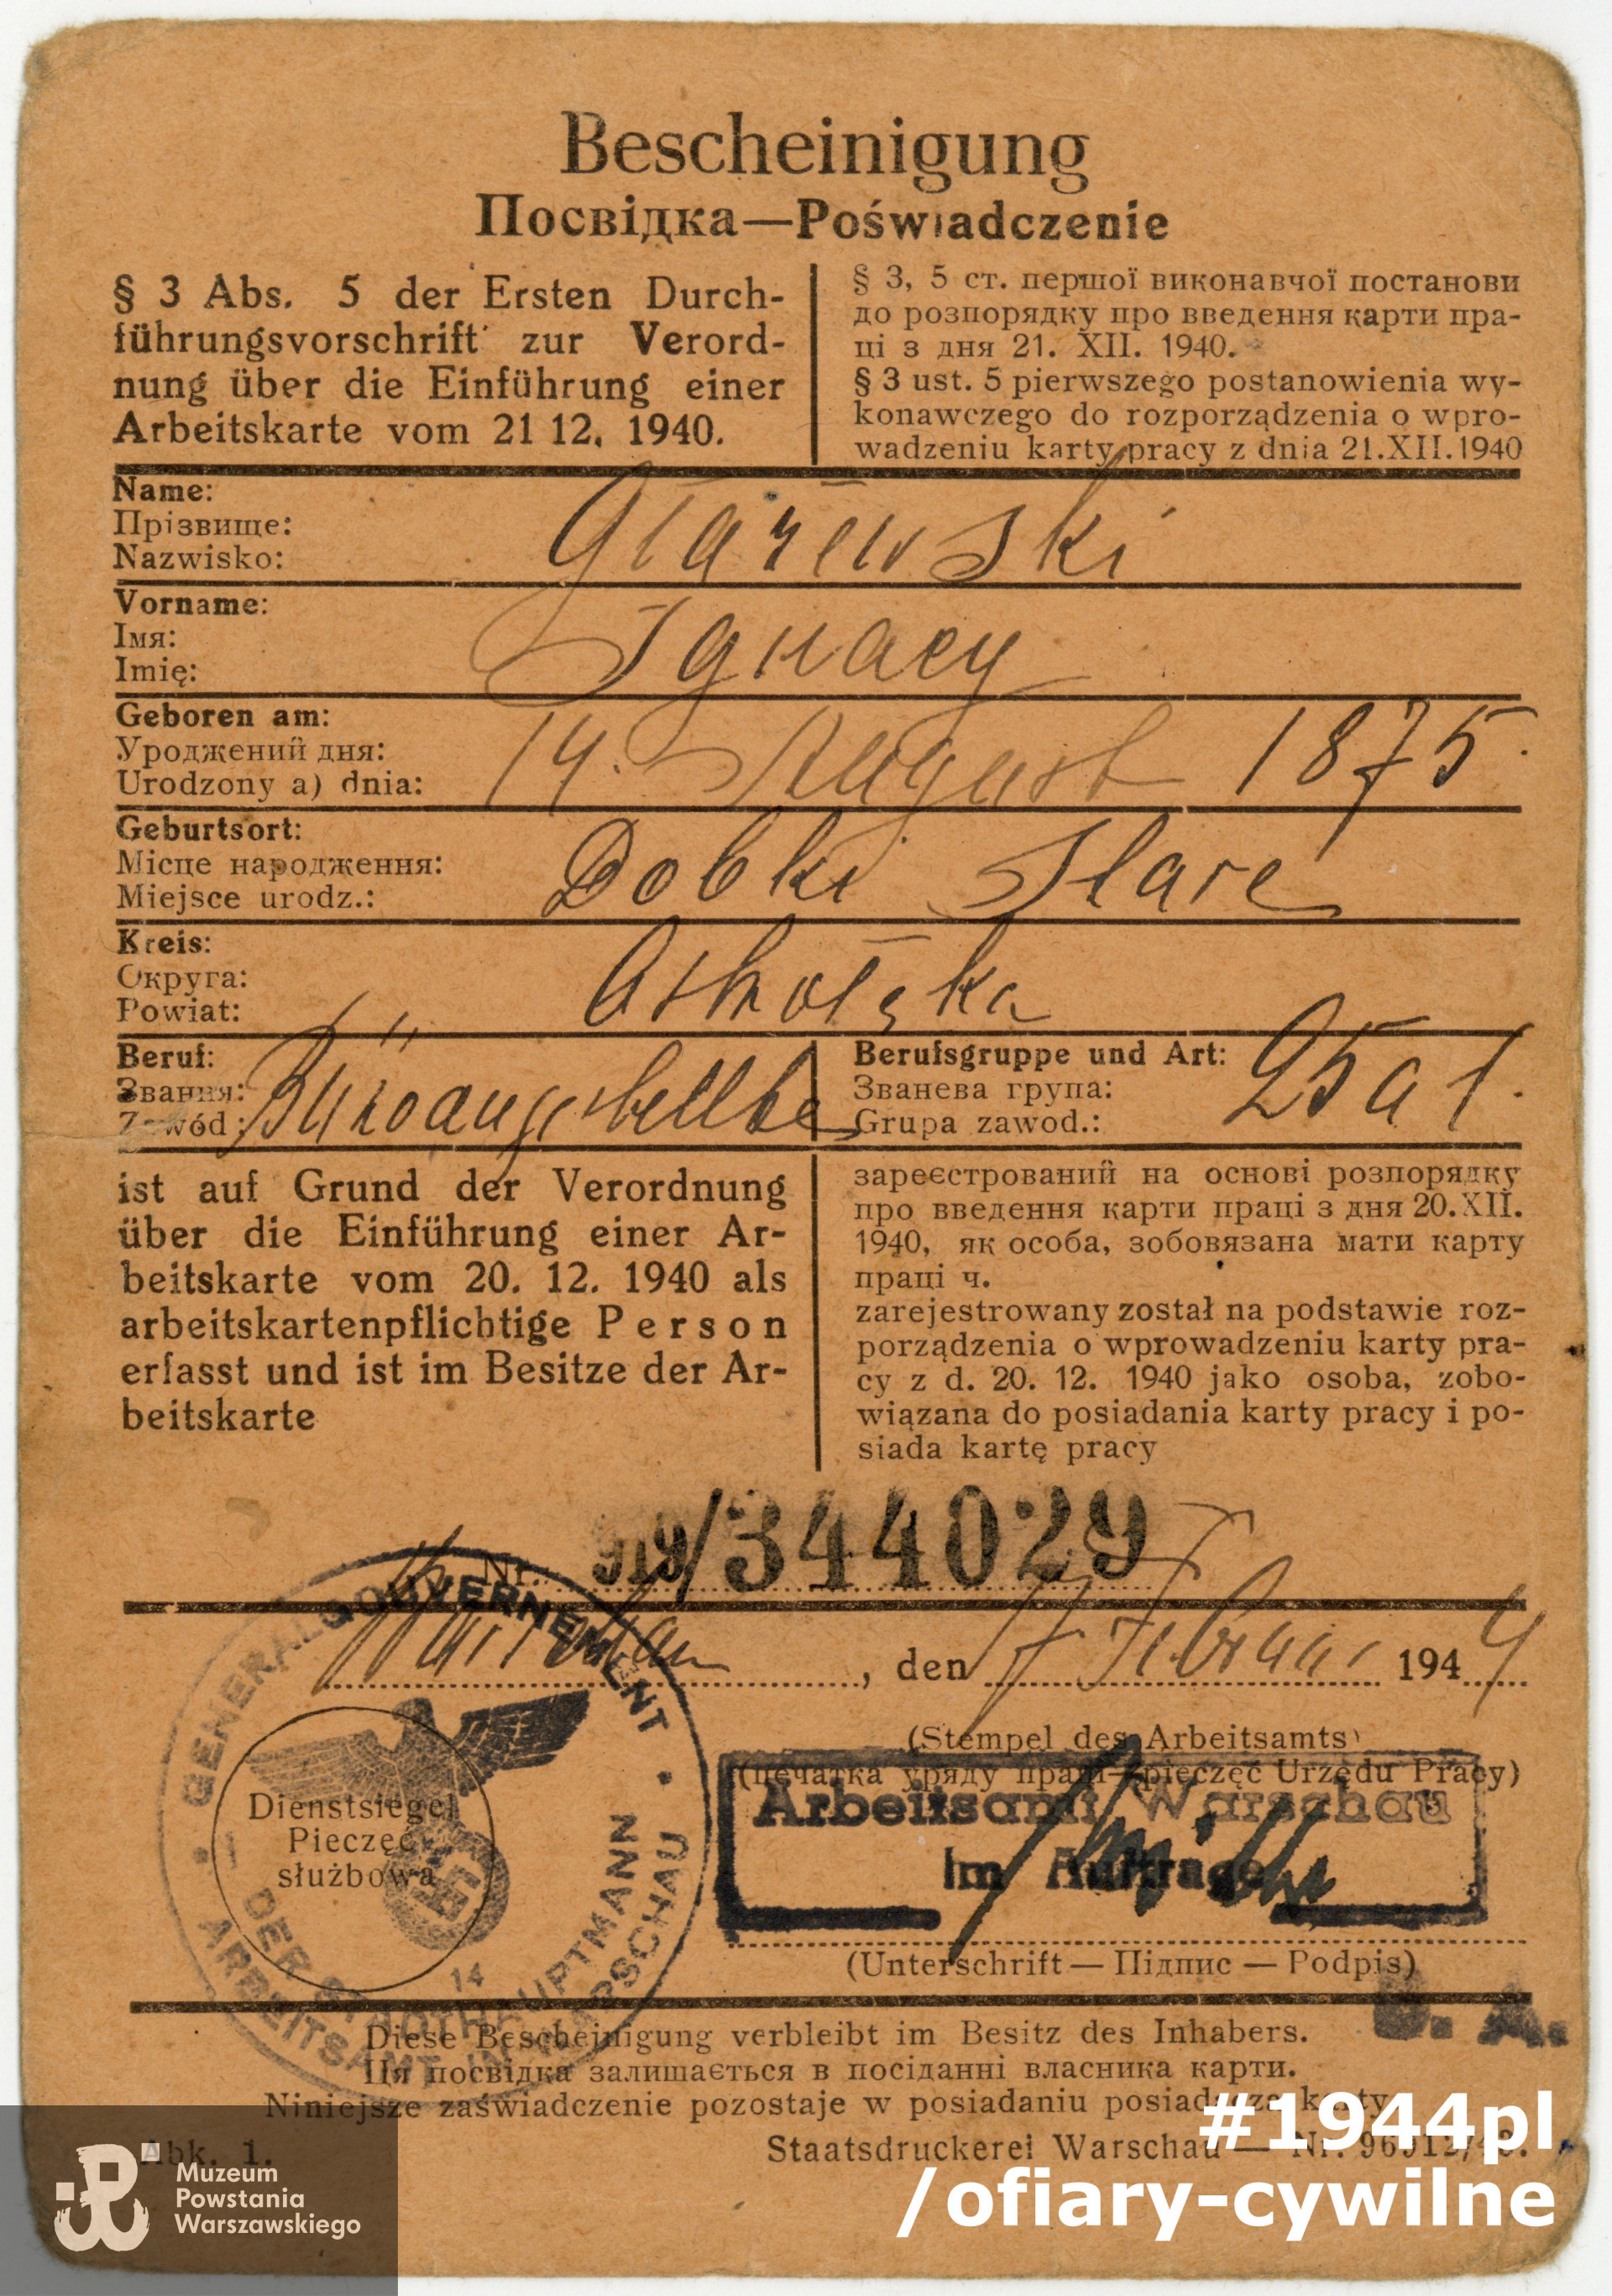 Bescheinigung
Посвідка—Poświadczenie
§ 3 Abs. 5 der Ersten Durch-
führungsvorschrift zur Verord-
nung über die Einführung einer
Arbeitskarte vom 21 12. 1940.
§ 3, 5 ст. першої виконавчої постанови
до розпорядку про введення карти пра-
ці з дня 21. XII. 1940.
§ 3 ust. 5 pierwszego postanowienia wy-
konawczego do rozporządzenia o wpro-
wadzeniu karty pracy z dnia 21.XII.1940
Name:
Прізвище:
Nazwisko:
Vorname:
Імя:
Imię:
Ignacy
Geboren am:
Уроджений дня:
Urodzony a) dnia:
14. August 1875.
Geburtsort:
Місце народження:
Miejsce urodz.:
Dobki Stare
Kreis:
Округа:
Powiat:
Beruf:
Звания:
Zawód:
Büroangestellte
Berufsgruppe und Art:
Званева група:
Grupa zawod.:
25 a 1.
ist auf Grund der Verordnung
über die Einführung einer Ar-
beitskarte vom 20. 12. 1940 als
arbeitskartenpflichtige Person
erfasst und ist im Besitze der Ar-
beitskarte
зареєстрований на основі розпорядку
про введення карти праці з дня 20.XII.
1940, як особа, зобовязана мати карту
праці ч.
zarejestrowany został na podstawie roz-
porządzenia o wprowadzeniu karty pra-
cy z d. 20. 12. 1940 jako osoba, zobo-
wiązana do posiadania karty pracy i po-
siada kartę pracy
Nr. 919/344029
Warschau, den 7. Februar 1944
(Stempel des Arbeitsamts)
(печатка уряду праці—pieczęć Urzędu Pracy)
Arbeitsamt Warschau
Im Auftrage
GENERALGOUVERNEMENT
DER STADTHAUPTMANN
ARBEITSAMT WARSCHAU
14
Dienstsiegel
Pieczęć
służbowa
(Unterschrift — Підпис — Podpis)
B. A.
Diese Bescheinigung verbleibt im Besitz des Inhabers.
Ця посвідка залишається в посіданні власника карти.
Niniejsze zaświadczenie pozostaje w posiadaniu posiadacza karty
Abk. 1.
Staatsdruckerei Warschau — Nr.
#1944pl
/ofiary-cywilne
Muzeum
Powstania
Warszawskiego